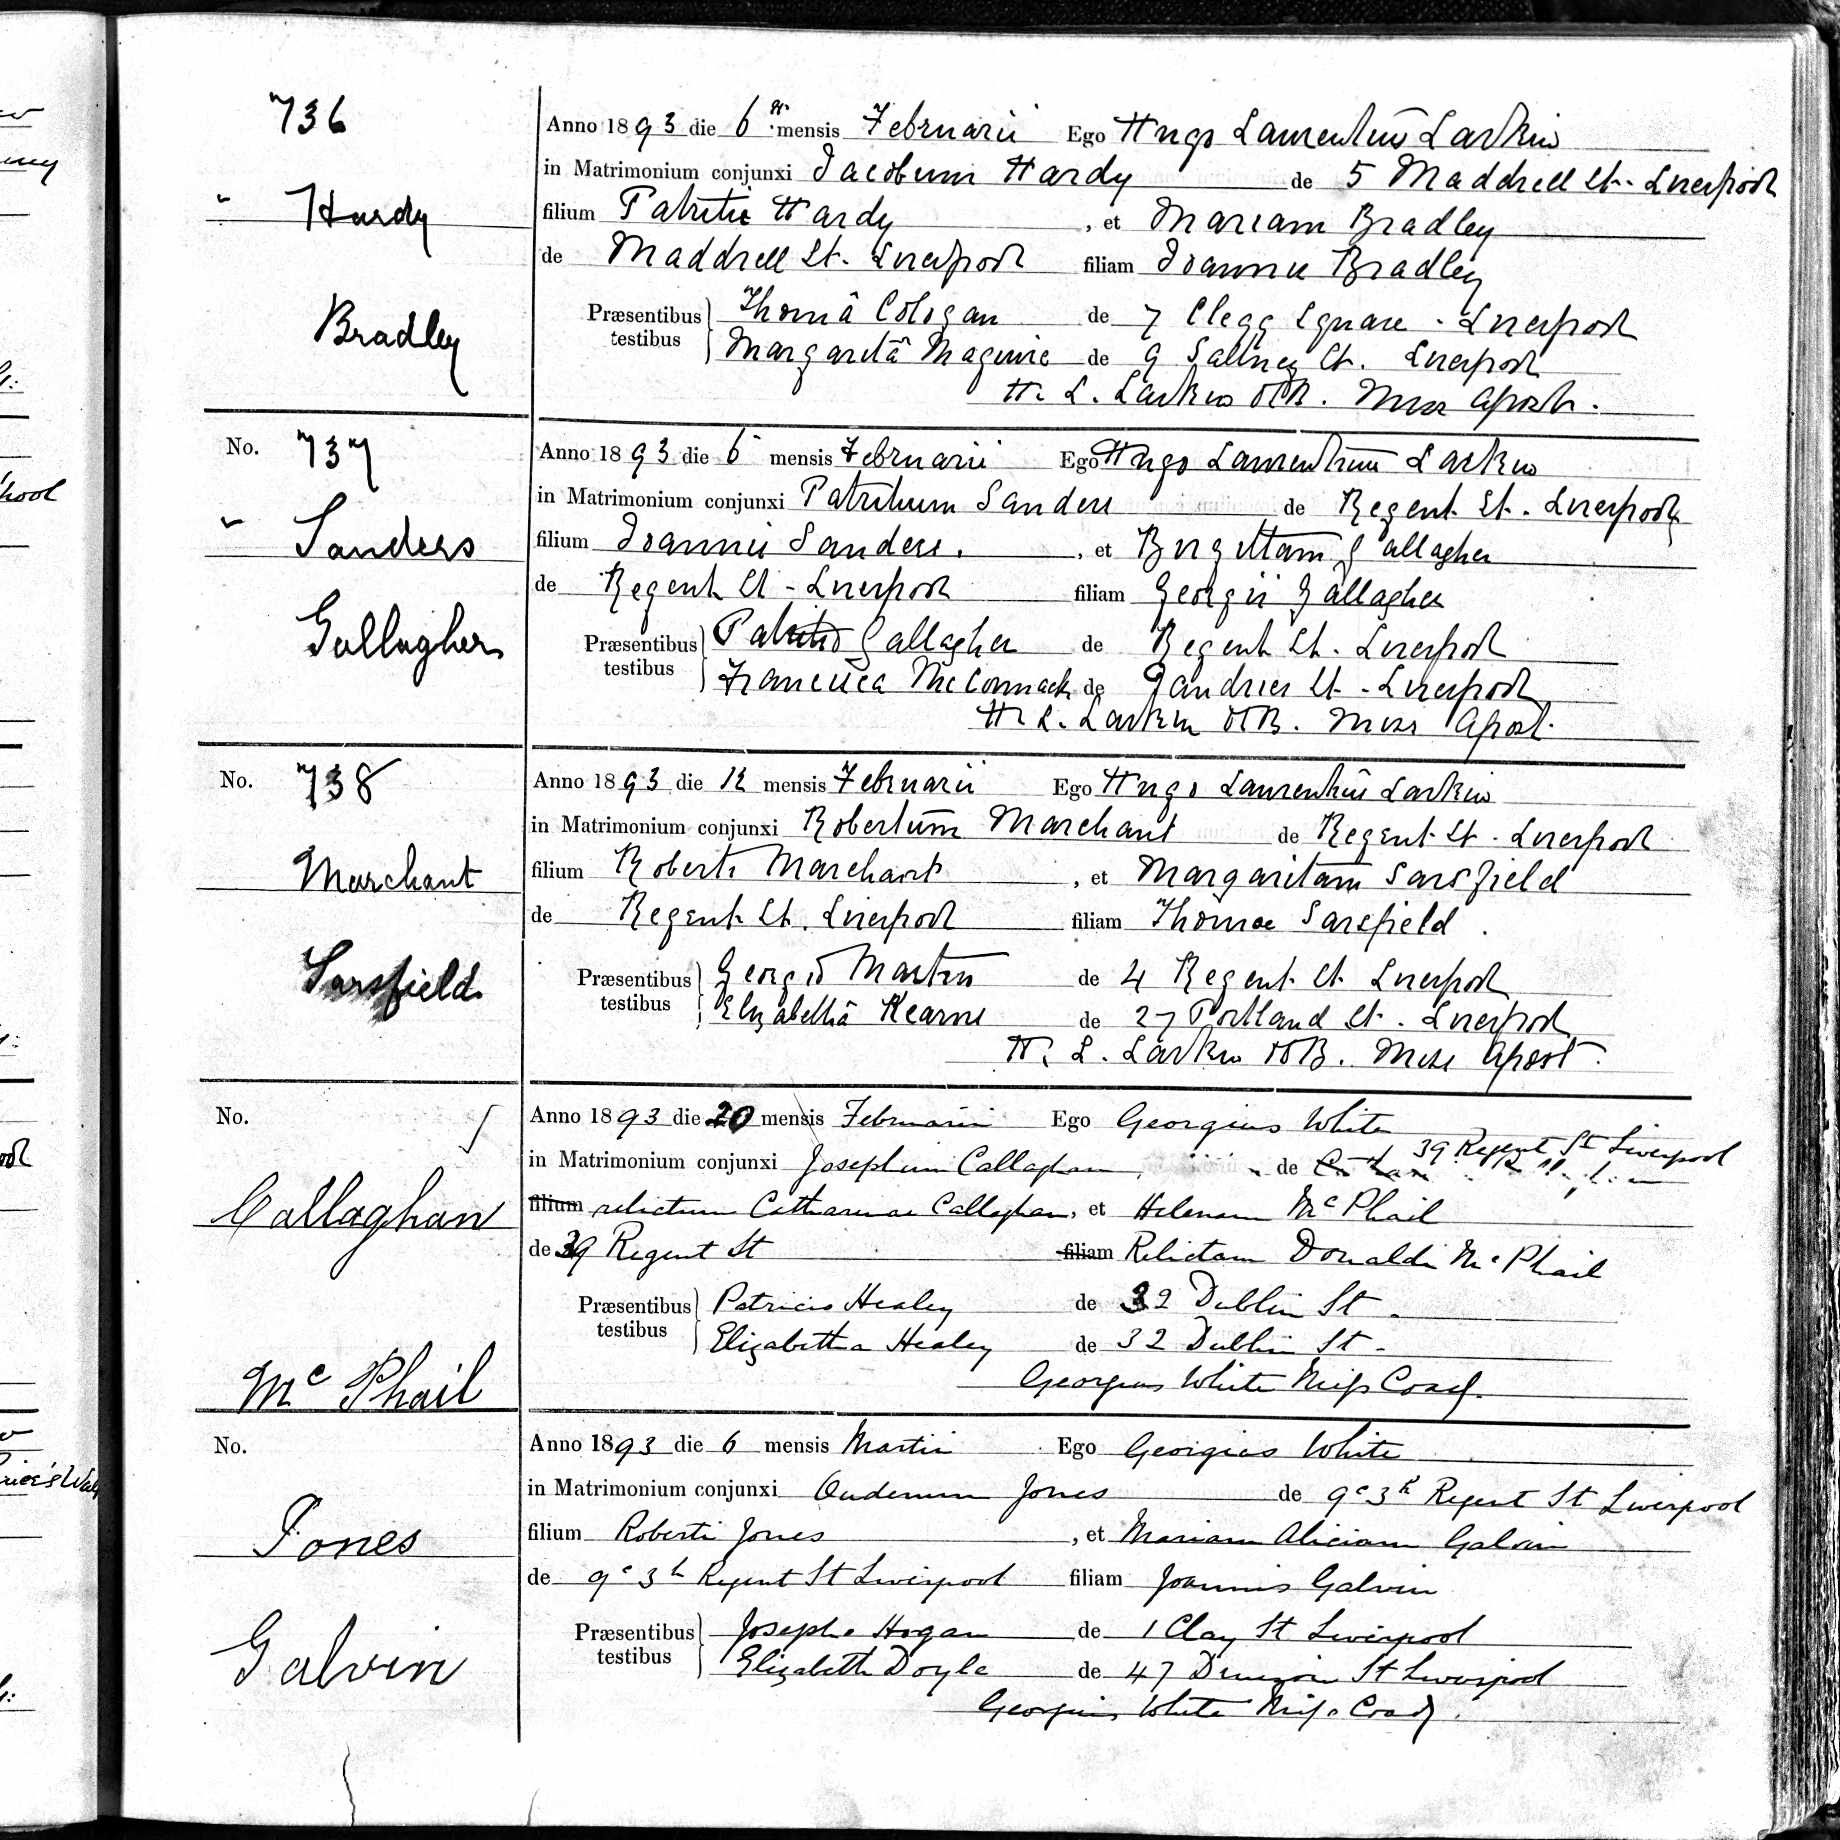 736
Anno 1893 die 6 mensis Februarii Ego Hugo Laurentius Larkin
in Matrimonium conjunxi Jacobum Hardy de 5 Maddrell St. Liverpool
Hardy
filium Patritii Hardy, et Mariam Bradley
de Maddrell St. Liverpool filiam Joannis Bradley
Bradley
Præsentibus testibus Thomâ Cologan de 7 Clegg Square. Liverpool
Margaritâ Maguire de 9 Saltney St. Liverpool
H. L. Larkin OSB. Miss Apost.
No. 737
Anno 1893 die 6 mensis Februarii Ego Hugo Laurentius Larkin
in Matrimonium conjunxi Patritium Sanders de Regent St. Liverpool
Sanders
filium Joannis Sanders., et Birgittam Gallagher
de Regent St - Liverpool filiam Georgii Gallagher
Gallagher
Præsentibus testibus Patritio Gallagher de Regent St. Liverpool
Francisca McCormack de St - Liverpool
H. L. Larkin OSB. Miss Apost.
No. 738
Anno 1893 die 12 mensis Februarii Ego Hugo Laurentius Larkin
in Matrimonium conjunxi Robertum Marchant de Regent St - Liverpool
Marchant
filium Roberti Marchant, et Margaritam Sarsfield
de Regent St. Liverpool filiam Thomae Sarsfield.
Sarsfield
Præsentibus testibus Georgio Martin de 4 Regent St Liverpool
Elizabethâ Kearns de 27 Portland St. Liverpool
H. L. Larkin OSB. Miss Apost.
No.
Anno 1893 die 20 mensis Februarii Ego Georgius White
39 Regent St Liverpool
in Matrimonium conjunxi Josephum Callaghan, de
Callaghan
filium relictum Catharinae Callaghan, et Helenam McPhail
de 39 Regent St filiam Relictam Donaldi McPhail
Præsentibus testibus Patricio Healey de 32 Dublin St.
Elizabetha Healey de 32 Dublin St.
Mc Phail
Georgius White Miss Coad.
No.
Anno 1893 die 6 mensis Martii Ego Georgius White
in Matrimonium conjunxi Jones de 9c 3h Regent St Liverpool
Jones
filium Roberti Jones, et Mariam Aliciam Galvin
de 9c 3h Regent St Liverpool filiam Joannis Galvin
Galvin
Præsentibus testibus Josepho Hogan de 1 Clay St Liverpool
Elizabeth Doyle de 47 St Liverpool
Georgius White Miss Coad.